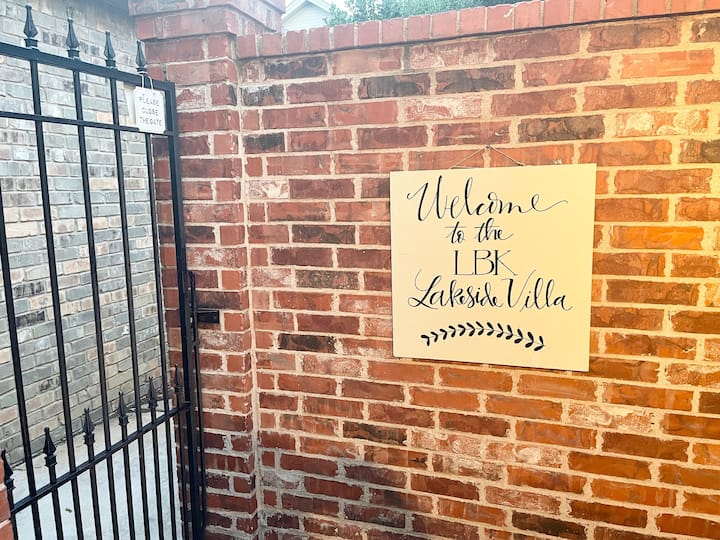 PLEASE
CLOSE
THE GATE
Welcome
to the
LBK
Lakeside Villa